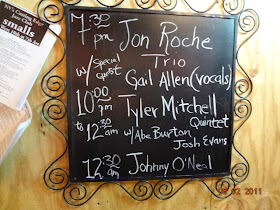 NY's Coming
Jazz Club
smalls
7 30 pm Jon Roche
Trio
w/ Special guest Gail Allen (vocals)
10 00 pm Tyler Mitchell
to 12 30 am Quintet
w/ Abe Burton
Josh Evans
12 30 am Johnny O'Neal
2011